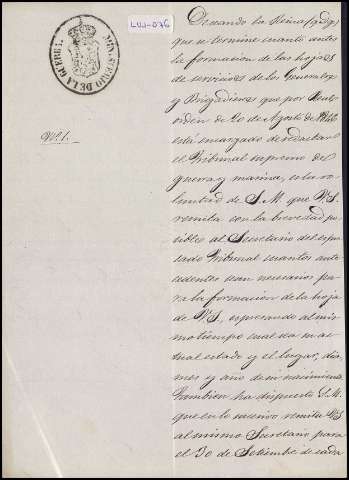 MINISTERIO DE LA GUERRA.
LUJ-076
Deseando la Reina (q.d.g.)
que se termine cuanto antes
la formacion de las hojas
de servicios de los Generales
y Brigadieres que por Real
orden de 20 de Agosto de 1846
está encargado de redactar
el Tribunal supremo de
guerra y marina, es la vo-
luntad de S. M. que V.S.
remita con la brevedad po-
sible al Secretario del espre-
sado Tribunal cuantos ante-
cedentes sean necesarios pa-
ra la formacion de la hoja
de V.S., espresando al mis-
mo tiempo cual sea su ac-
tual estado y el lugar, dia,
mes y año de su nacimiento.
Tambien ha dispuesto S.M.
que en lo sucesivo remita V.S.
al mismo Secretario para
el 30 de Setiembre de cada